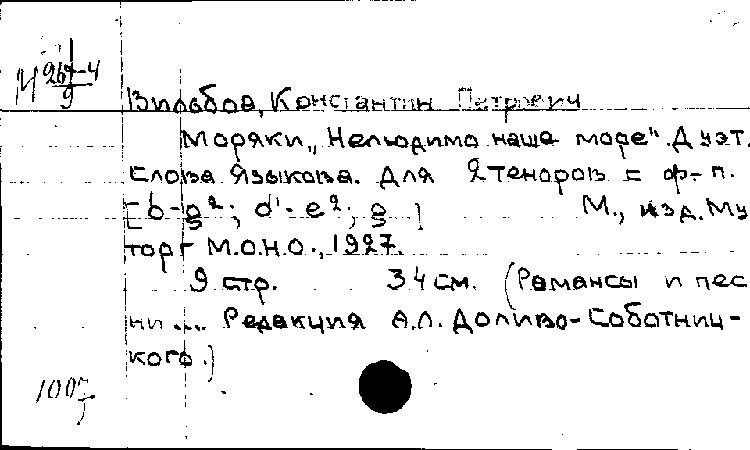 М 267-4
9
Вильбоа, Константин Петрович
Моряки „Нелюдимо наше море". Дуэт.
Слова Языкова. Для 2 теноров с ф-п.
[b-g²; d'-e²; g]
М., изд. Му
торг М.О.Н.О., 1927.
9 стр. 34 см. (Романсы и пес
ни ... Редакция А.Л. Доливо-Соботниц-
кого.)